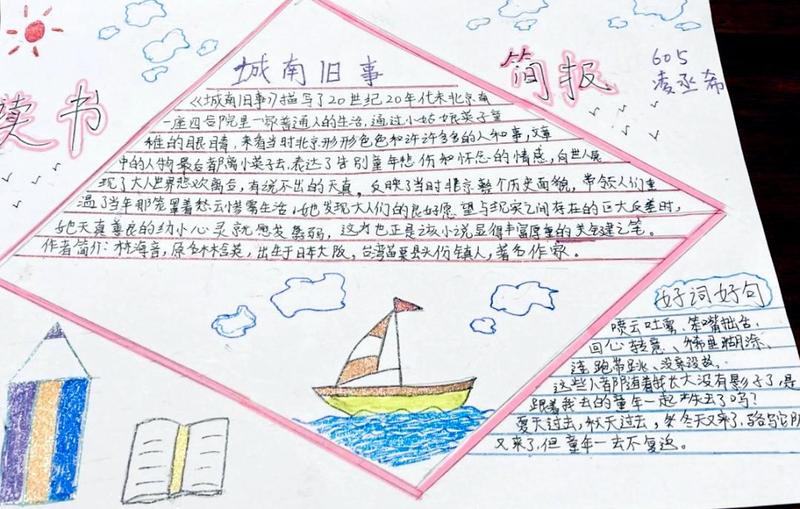 读书
简报
605
凌丞希
城南旧事
《城南旧事》描写了20世纪20年代末北京南
一座四合院里一家普通人的生活,通过小姑娘英子童
稚的眼睛,来看当时北京形形色色和许许多多的人和事,文章
中的人物最后都离小英子去,表达了告别童年悲伤和怀念的情感,向世人展
现了大人世界悲欢离合,有说不出的天真,反映了当时北京整个历史面貌,带领人们重
温了当年那笼罩着愁云惨雾生活,她发现大人们的良好愿望与现实之间存在的巨大反差时,
她天真善良的幼小心灵就愈发,这也正是该小说显得丰富厚重的关键之笔。
作者简介:林海音,原名林含英,出生于日本大阪,台湾苗栗县头份镇人,著名作家。
好词好句
喷云吐雾、笨嘴拙舌、
回心转意、稀里糊涂、
连跑带跳、没来没故、
这些人都随着我长大没有影子了,是
跟着我去的童年一起失去了吗?
夏天过去,秋天过去,冬天又来了,骆驼队
又来了,但童年一去不复返。